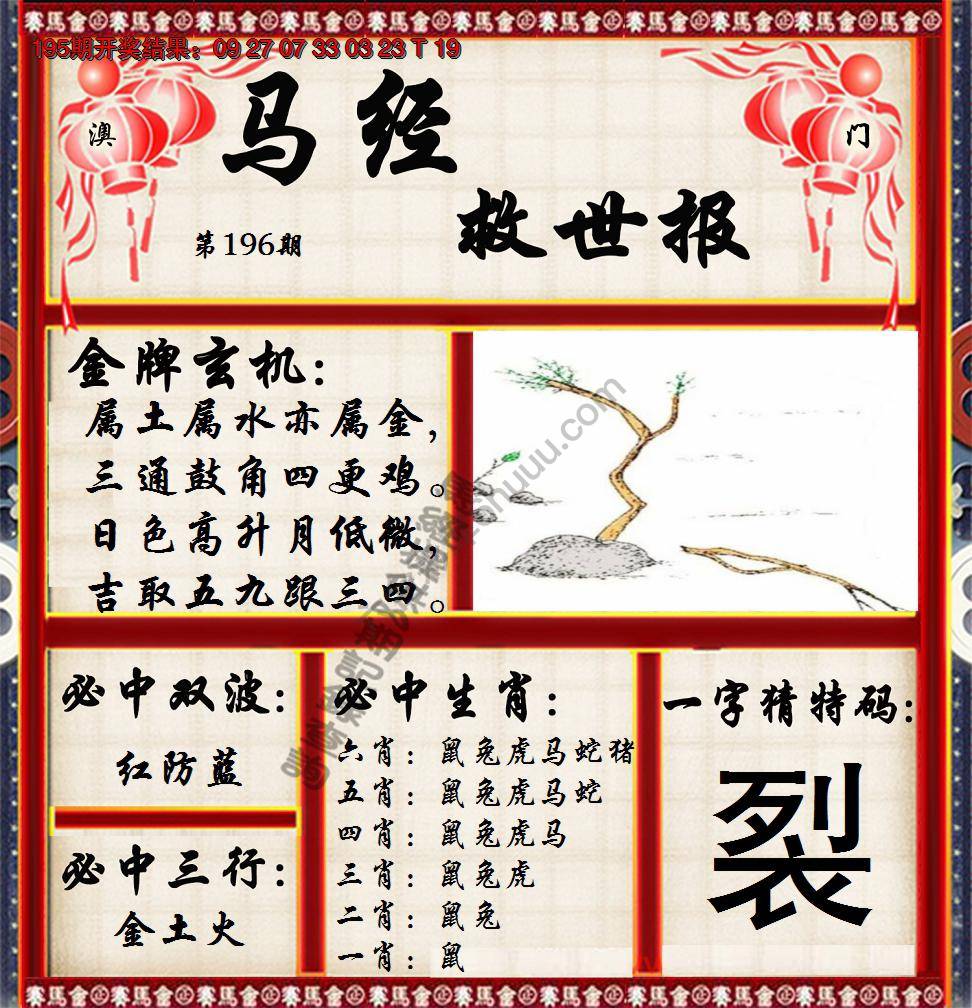 195期开奖结果：09 27 07 33 03 23 T 19
澳
门
马经
救世报
第196期
金牌玄机：
属土属水亦属金，
三通鼓角四更鸡。
日色高升月低微，
吉取五九跟三四。
必中双波：
红防蓝
必中三行：
金土火
必中生肖：
六肖：鼠兔虎马蛇猪
五肖：鼠兔虎马蛇
四肖：鼠兔虎马
三肖：鼠兔虎
二肖：鼠兔
一肖：鼠
一字猜特码：
裂